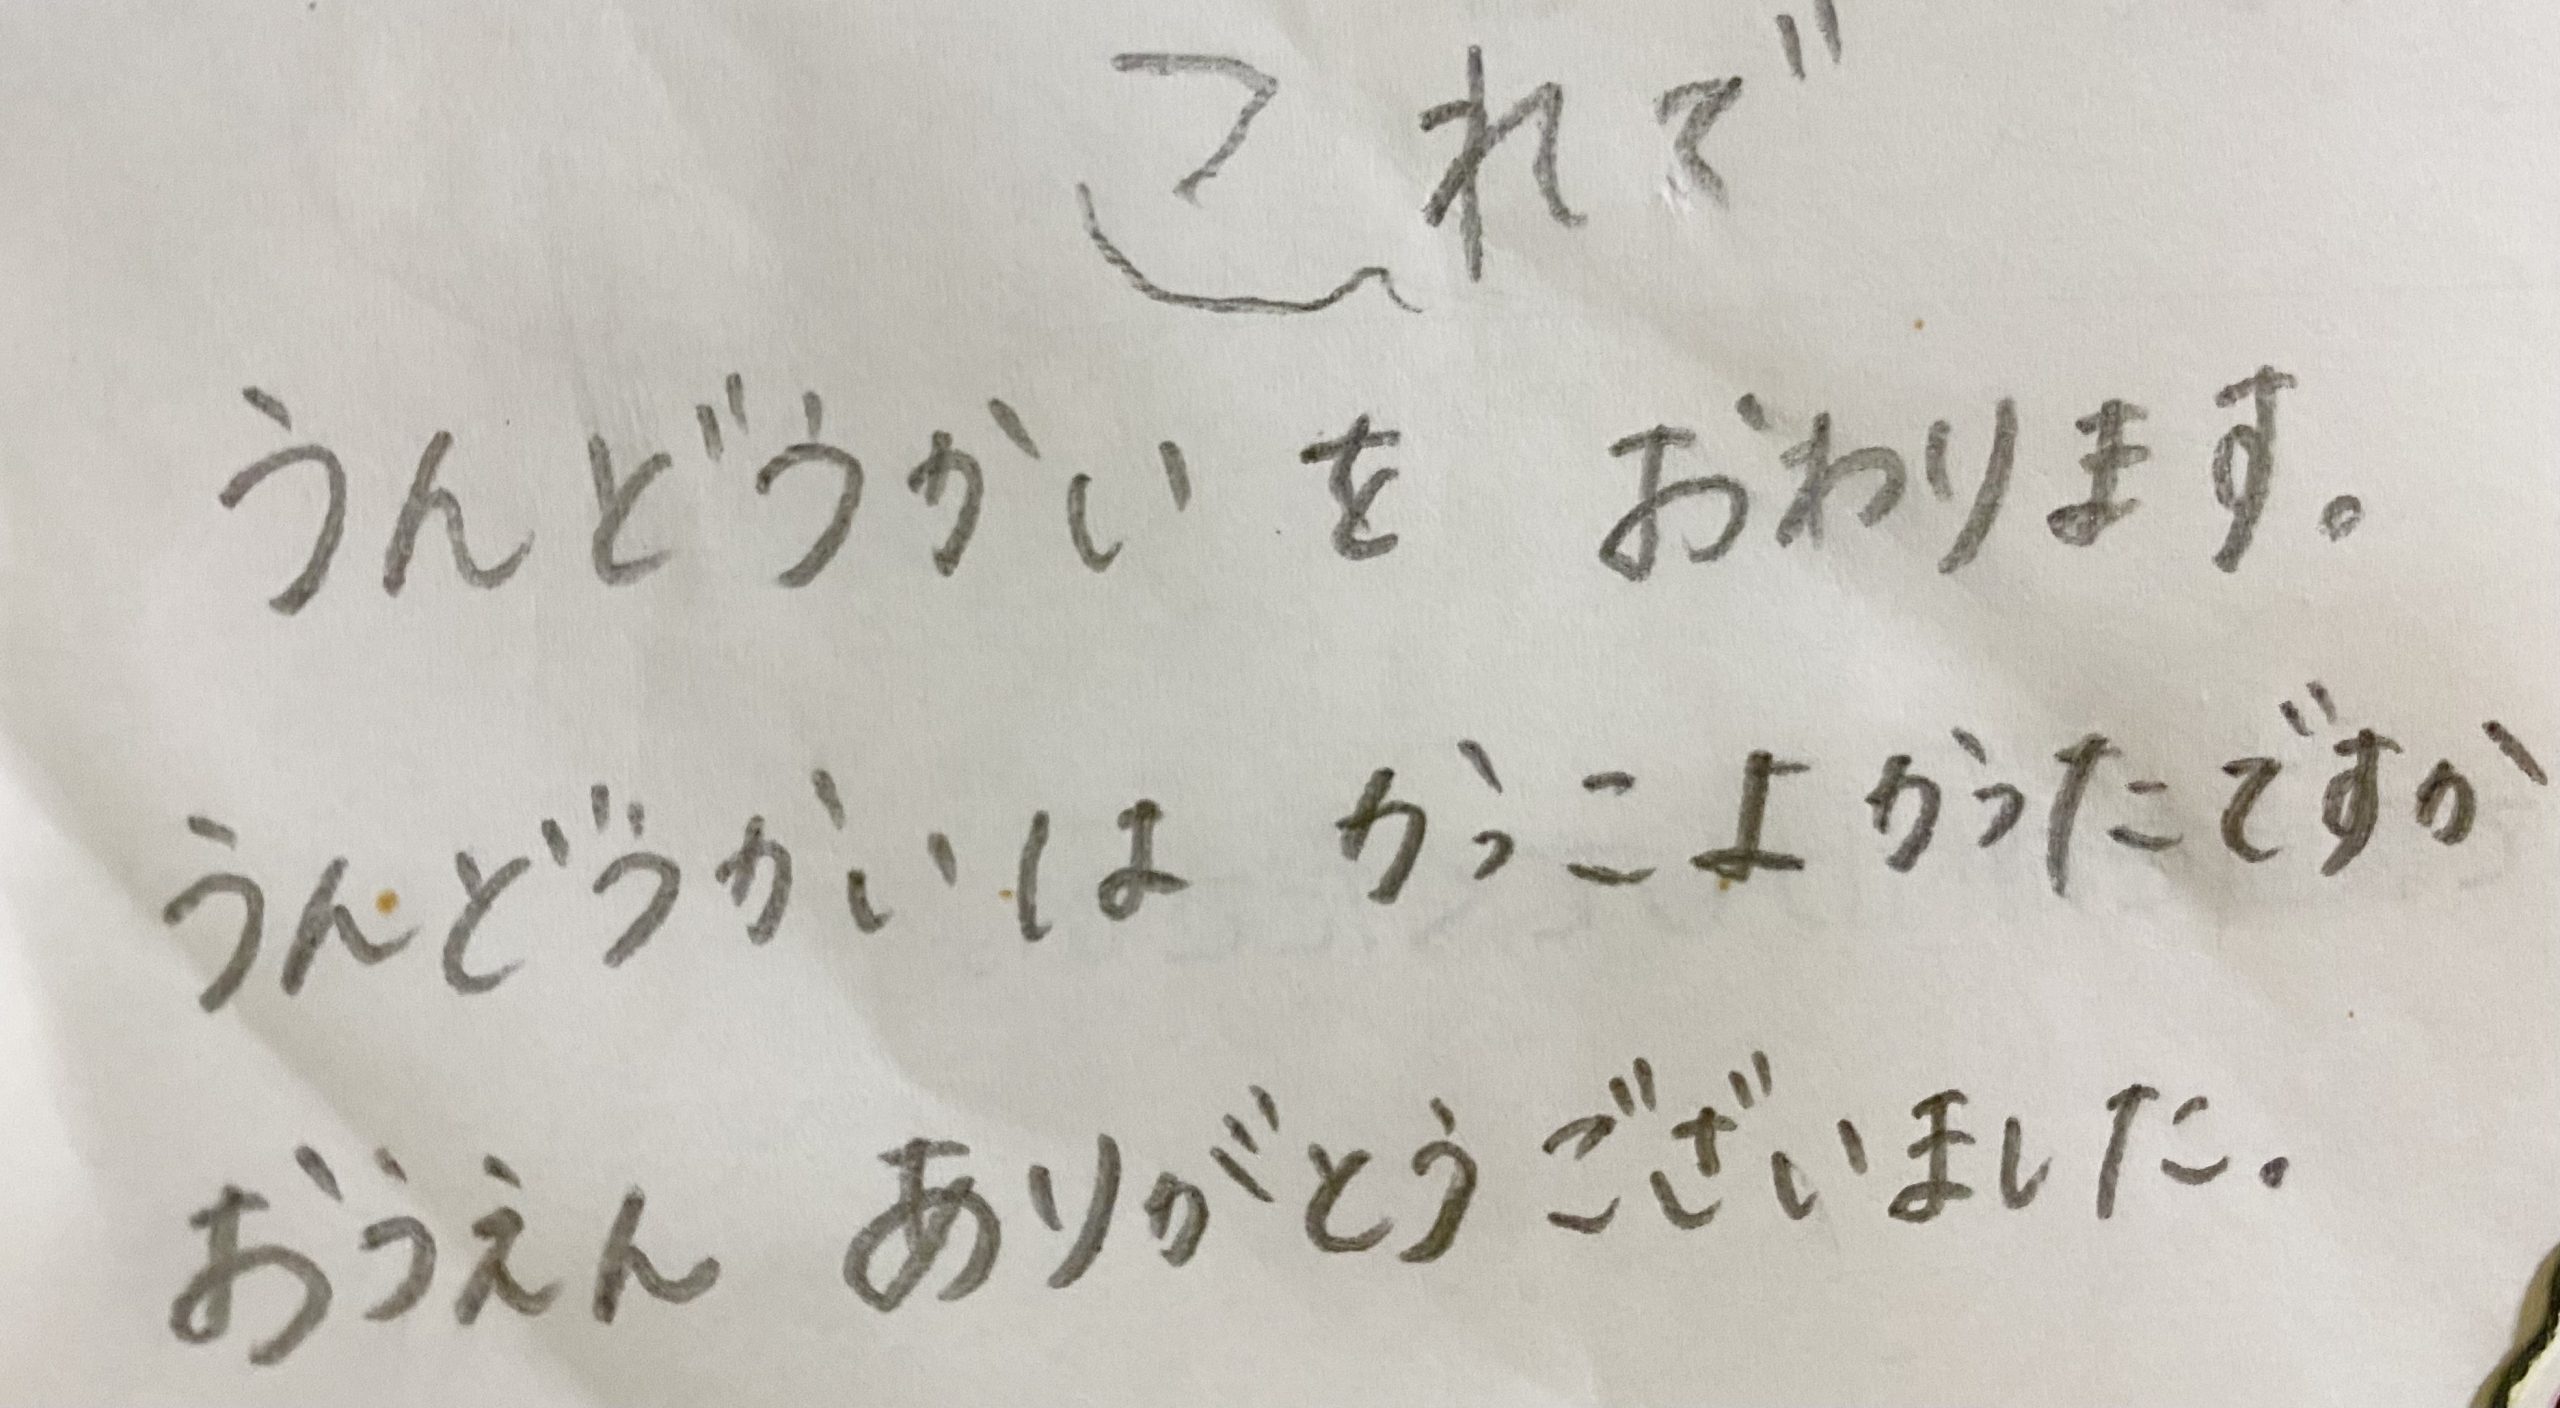 これで
うんどうかいを おわります。
うんどうかいは かっこよかったですか
おうえん ありがとうございました.